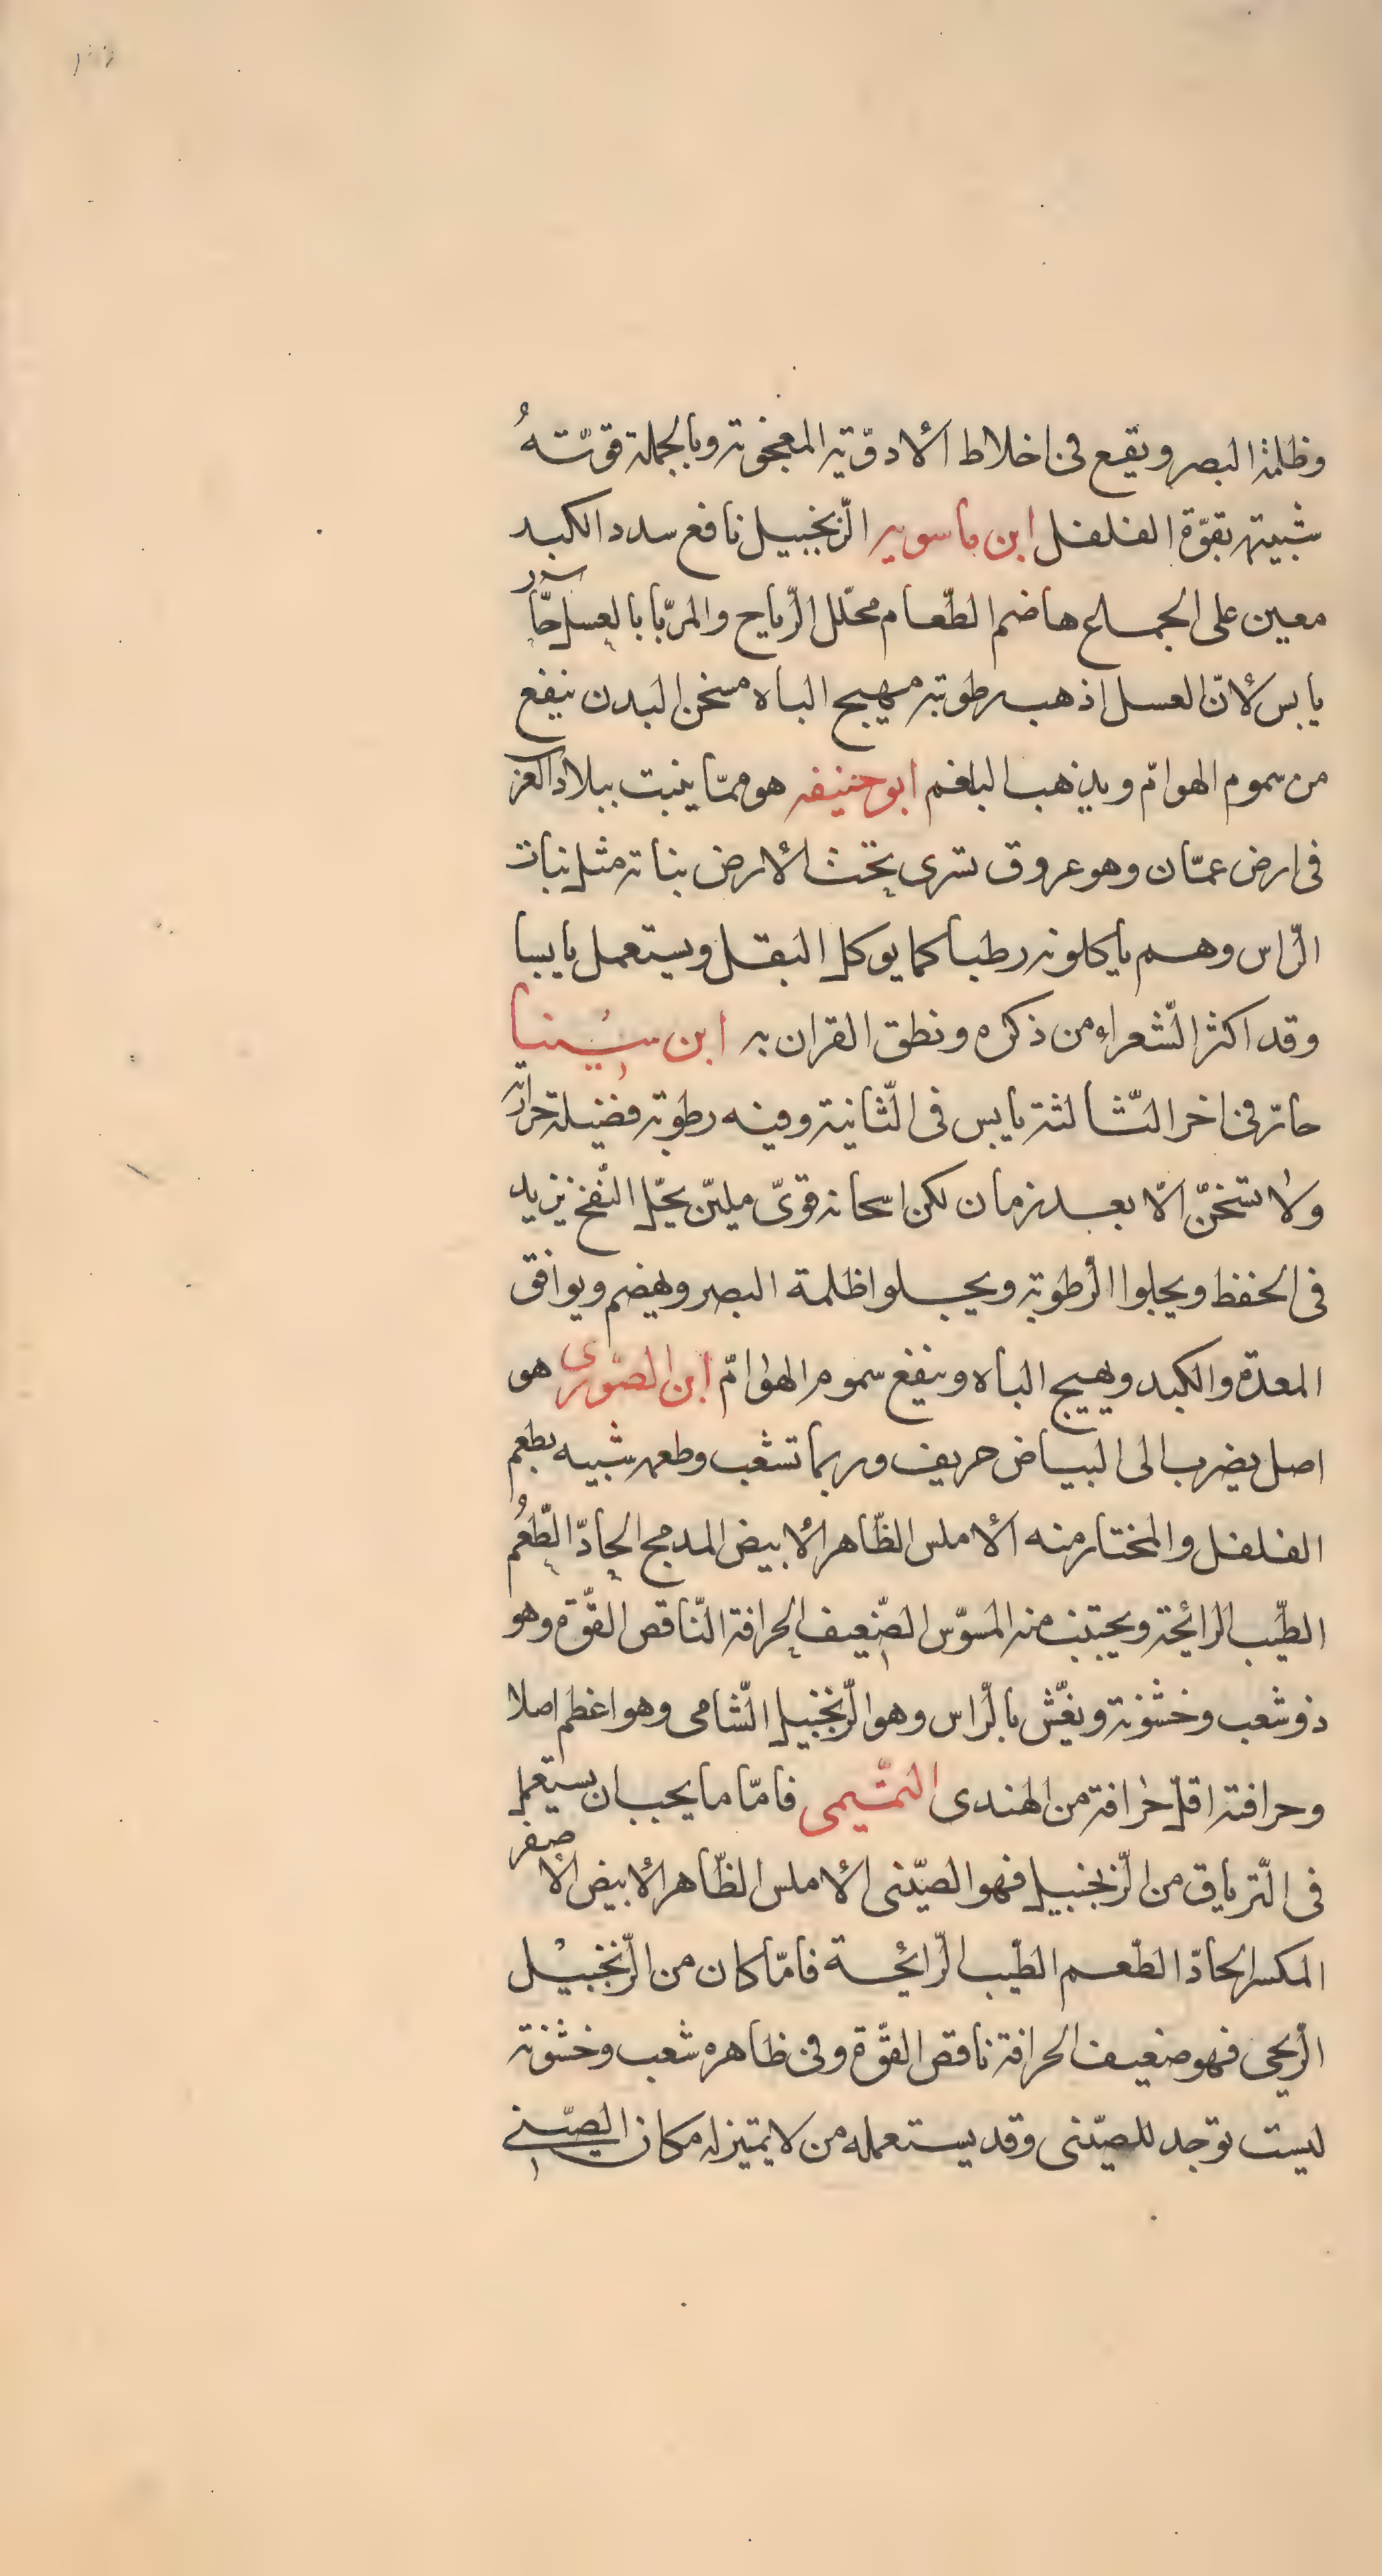 وظلمة البصر ويقع فى اخلاط الادوّية المعجونة وبالجملة قوّتهُ
شبيهة بقوّة الفلفل ابن ماسويه الزّنجبيل نافع سدد الكبد
معين على الجماع هاضم الطّعام محلّل الرّياح والمربّا بالعسل حارّ
يابس لأنّ العسل اذهب رطوبته مهيج الباه مسخن البدن ينفع
من سموم الهوامّ ويذهب البلغم ابو حنيفه هو ممّا ينبت ببلاد العرب
فى ارض عمّان وهو عروق تسرى تحت الارض نباته مثل نبات
الرّاس وهم ياكلونه رطبا كما يوكل البقل ويستعمل يابسا
وقد اكثر الشّعراء من ذكره ونطق القران به ابن سينا
حارّ فى اخر الثّالثة يابس فى الثّانية وفيه رطوبة فضيلة حرارته
ولا تسخنّ الّا بعد زمان لكن اسحانه قوىّ مليّن يحلّل النّفخ يزيد
فى الحفظ ويجلوا الرّطوبة ويجلوا ظلمة البصر ويهضم ويوافق
المعدة والكبد ويهيج الباه وينفع سموم الهوامّ ابن الصّورى هو
اصل يضرب الى البياض حريف وربما تشعب وطعمه شبيه بطعم
الفلفل والمختار منه الأملس الظّاهر الأبيض المدمج الحادّ الطّعُم
الطيّب الرائحة ويجتنب منه المسوّس الضّعيف الحرافة النّاقص القّوة وهو
ذو شعب وخشونة ويغّش بالرّاس وهو الزّنجبيل الشّامى وهو اغظم اصلا
وحرافته اقلّ حرافة من الهندى التمّيمى فامّا ما يجب ان يستعمل
فى التّرياق من الزّنجبيل فهو الصيّنى الأملس الظّاهر الأبيض الأصفر
المكسر الحادّ الطّعم الطيّب الرّائحة فامّا كان من الزّنجبيل
الرّيحى فهو ضعيف الحرافة ناقص القوّة وفى ظاهره شعب وخشونة
ليست توجد للصيّنى وقد يستعمله من لا يتميز له مكان الصيّنى